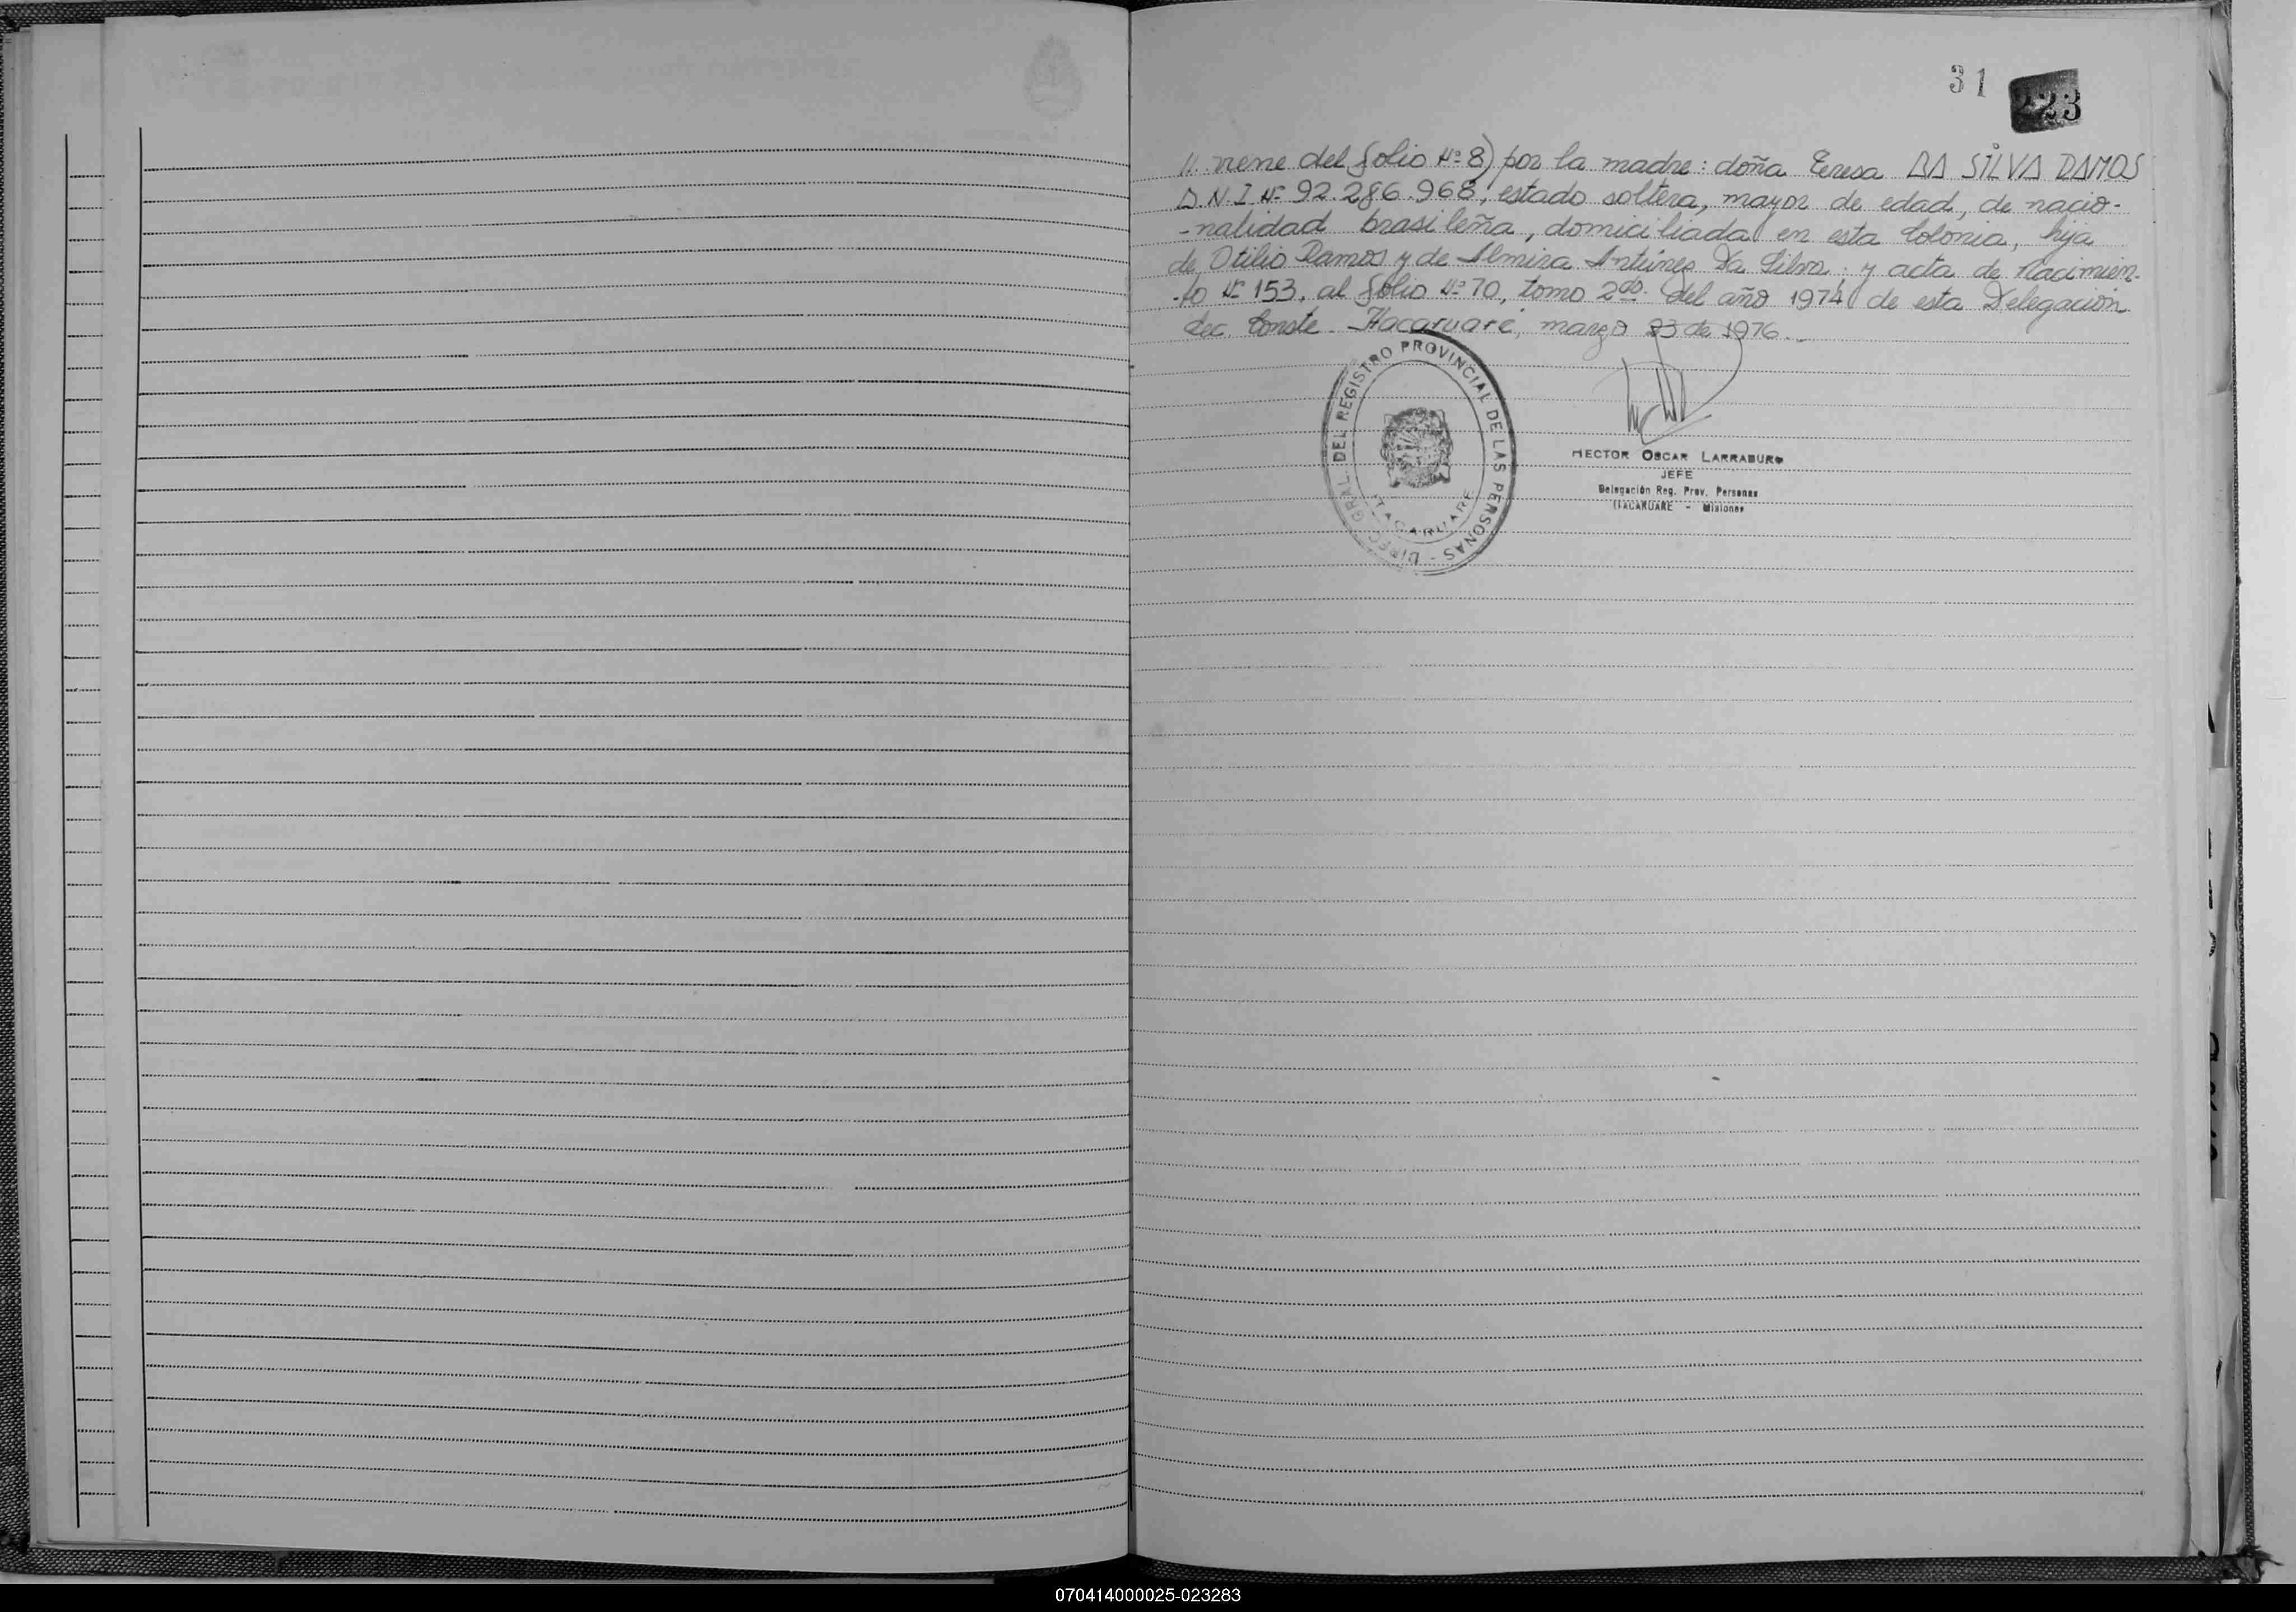 31
223
//. viene del folio Nº 8) por la madre: doña Teresa DA SILVA RAMOS
D.N.I Nº 92.286.968, estado soltera, mayor de edad, de nacio-
-nalidad brasileña, domiciliada en esta Colonia, hija
de Otilio Ramos y de Almira Antúnes Da Silva; y acta de Nacimien-
-to Nº 153, al folio Nº 70, tomo 2do. del año 1974 de esta Delegación
Conste. Itacaruaré, marzo 23 de 1976.
DIREC. GRAL. DEL REGISTRO PROVINCIAL DE LAS PERSONAS -
ITACARUARE
HECTOR OSCAR LARRABURO
JEFE
Delegación Reg. Prov. Personas
ITACARUARE - Misiones
070414000025-023283